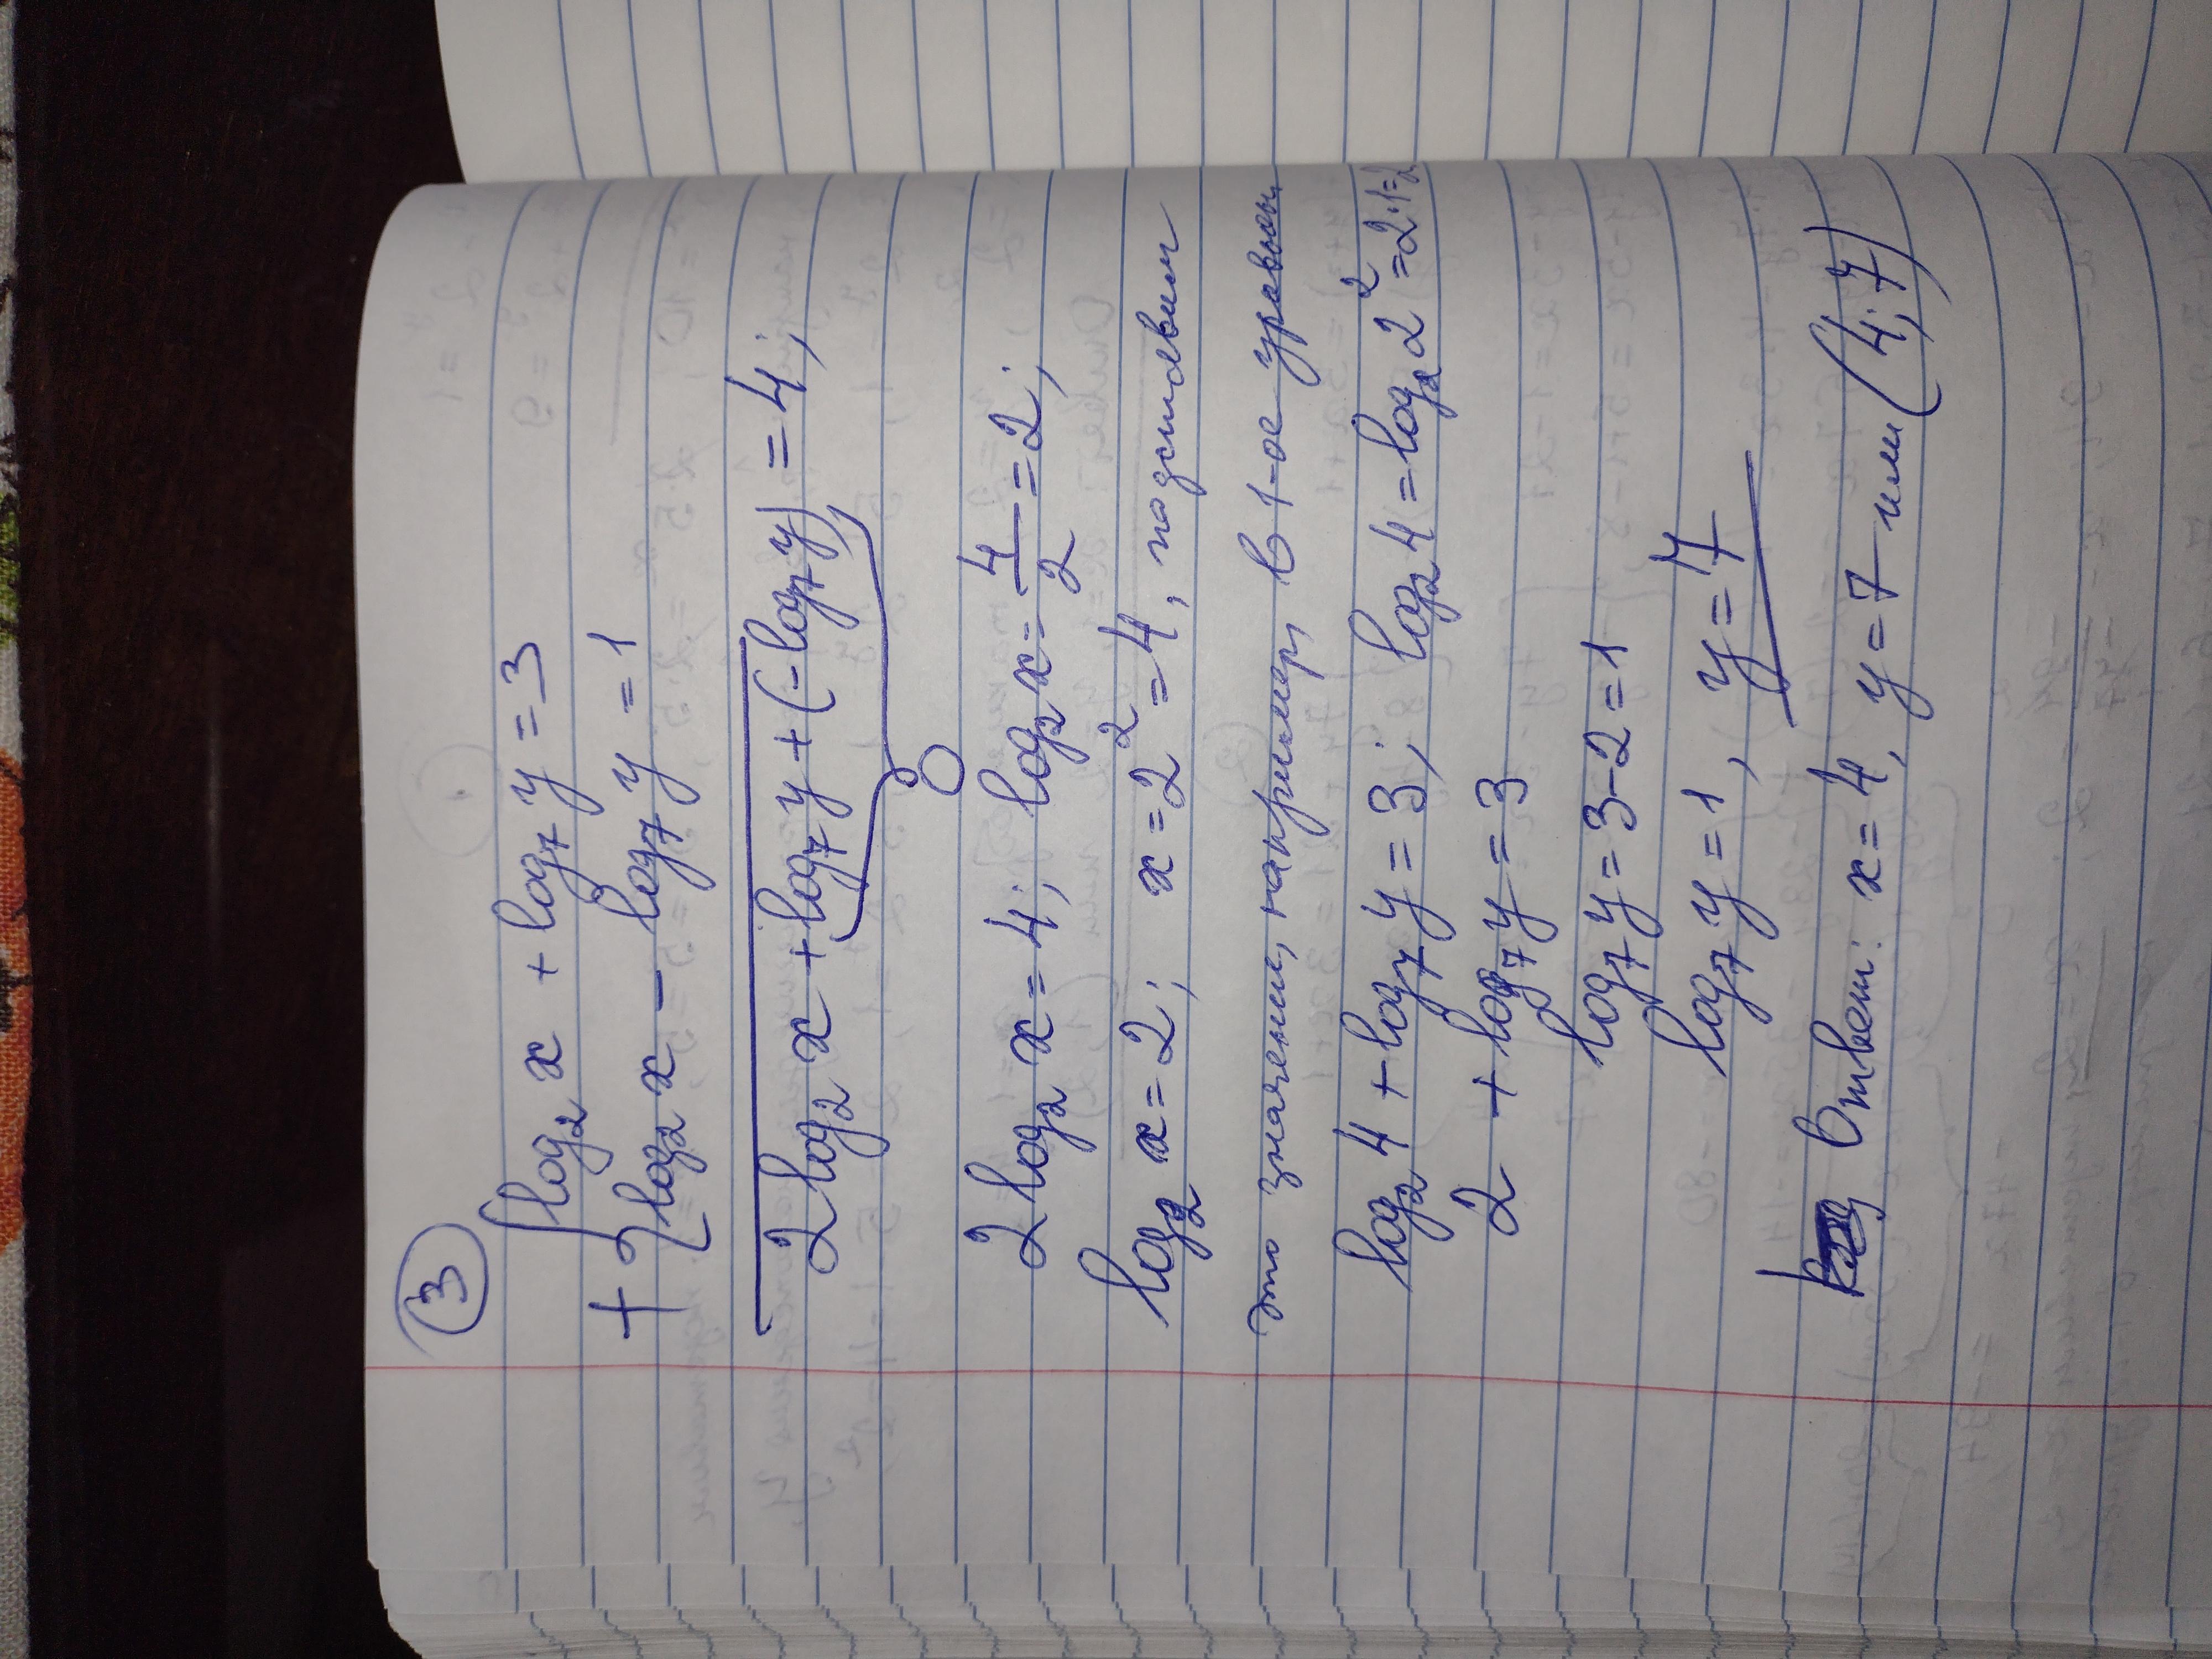 3
log₂ x + log₇ y = 3
+ { log₂ x - log₇ y = 1
2 log₂ x + log₇ y + (-log₇ y) = 4;
0
2 log₂ x = 4; log₂ x = 4/2 = 2;
log₂ x = 2; x = 2² = 4, подставим
это значение, например, в 1-ое уравнен
log₂ 4 + log₇ y = 3; log₂ 4 = log₂ 2² = 2·1=2
2 + log₇ y = 3
log₇ y = 3-2 = 1
log₇ y = 1, y = 7
Ответ: x = 4, y = 7 или (4; 7)